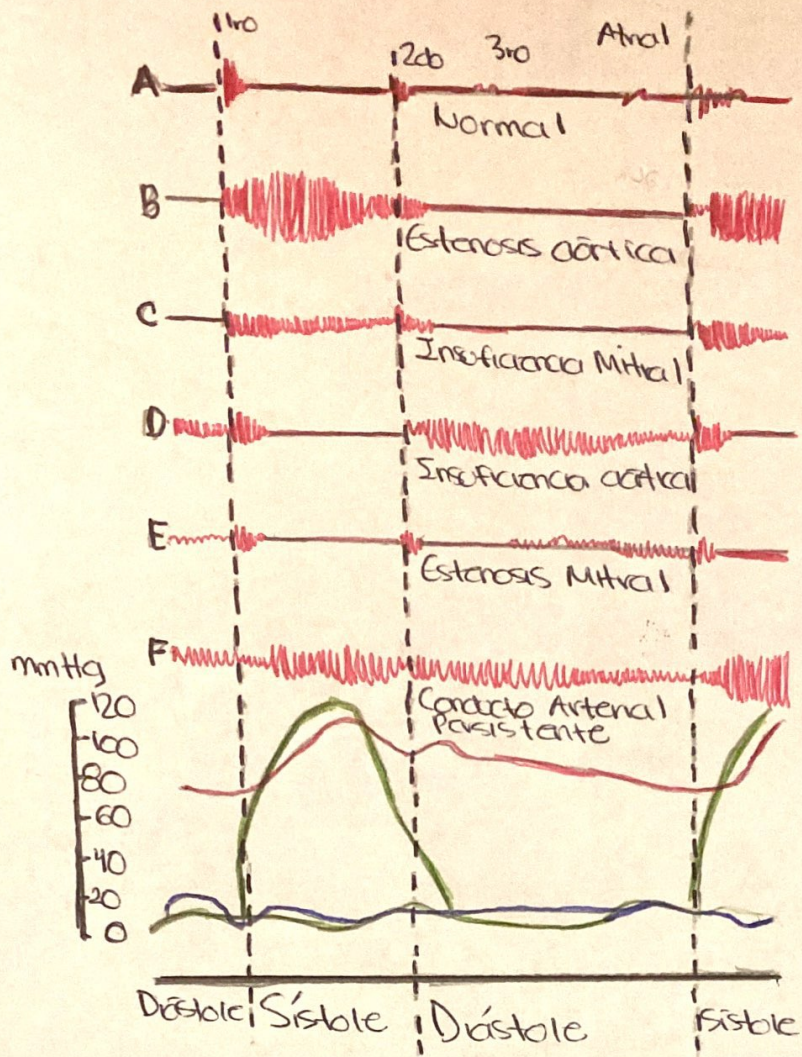 1ro
2do
3ro
Atrial
A
Normal
B
Estenosis aórtica
C
Insuficiencia Mitral
D
Insuficiencia aórtica
E
Estenosis Mitral
F
mmHg
Conducto Arterial
Persistente
120
100
80
60
40
20
0
Diástole Sístole Diástole Sístole